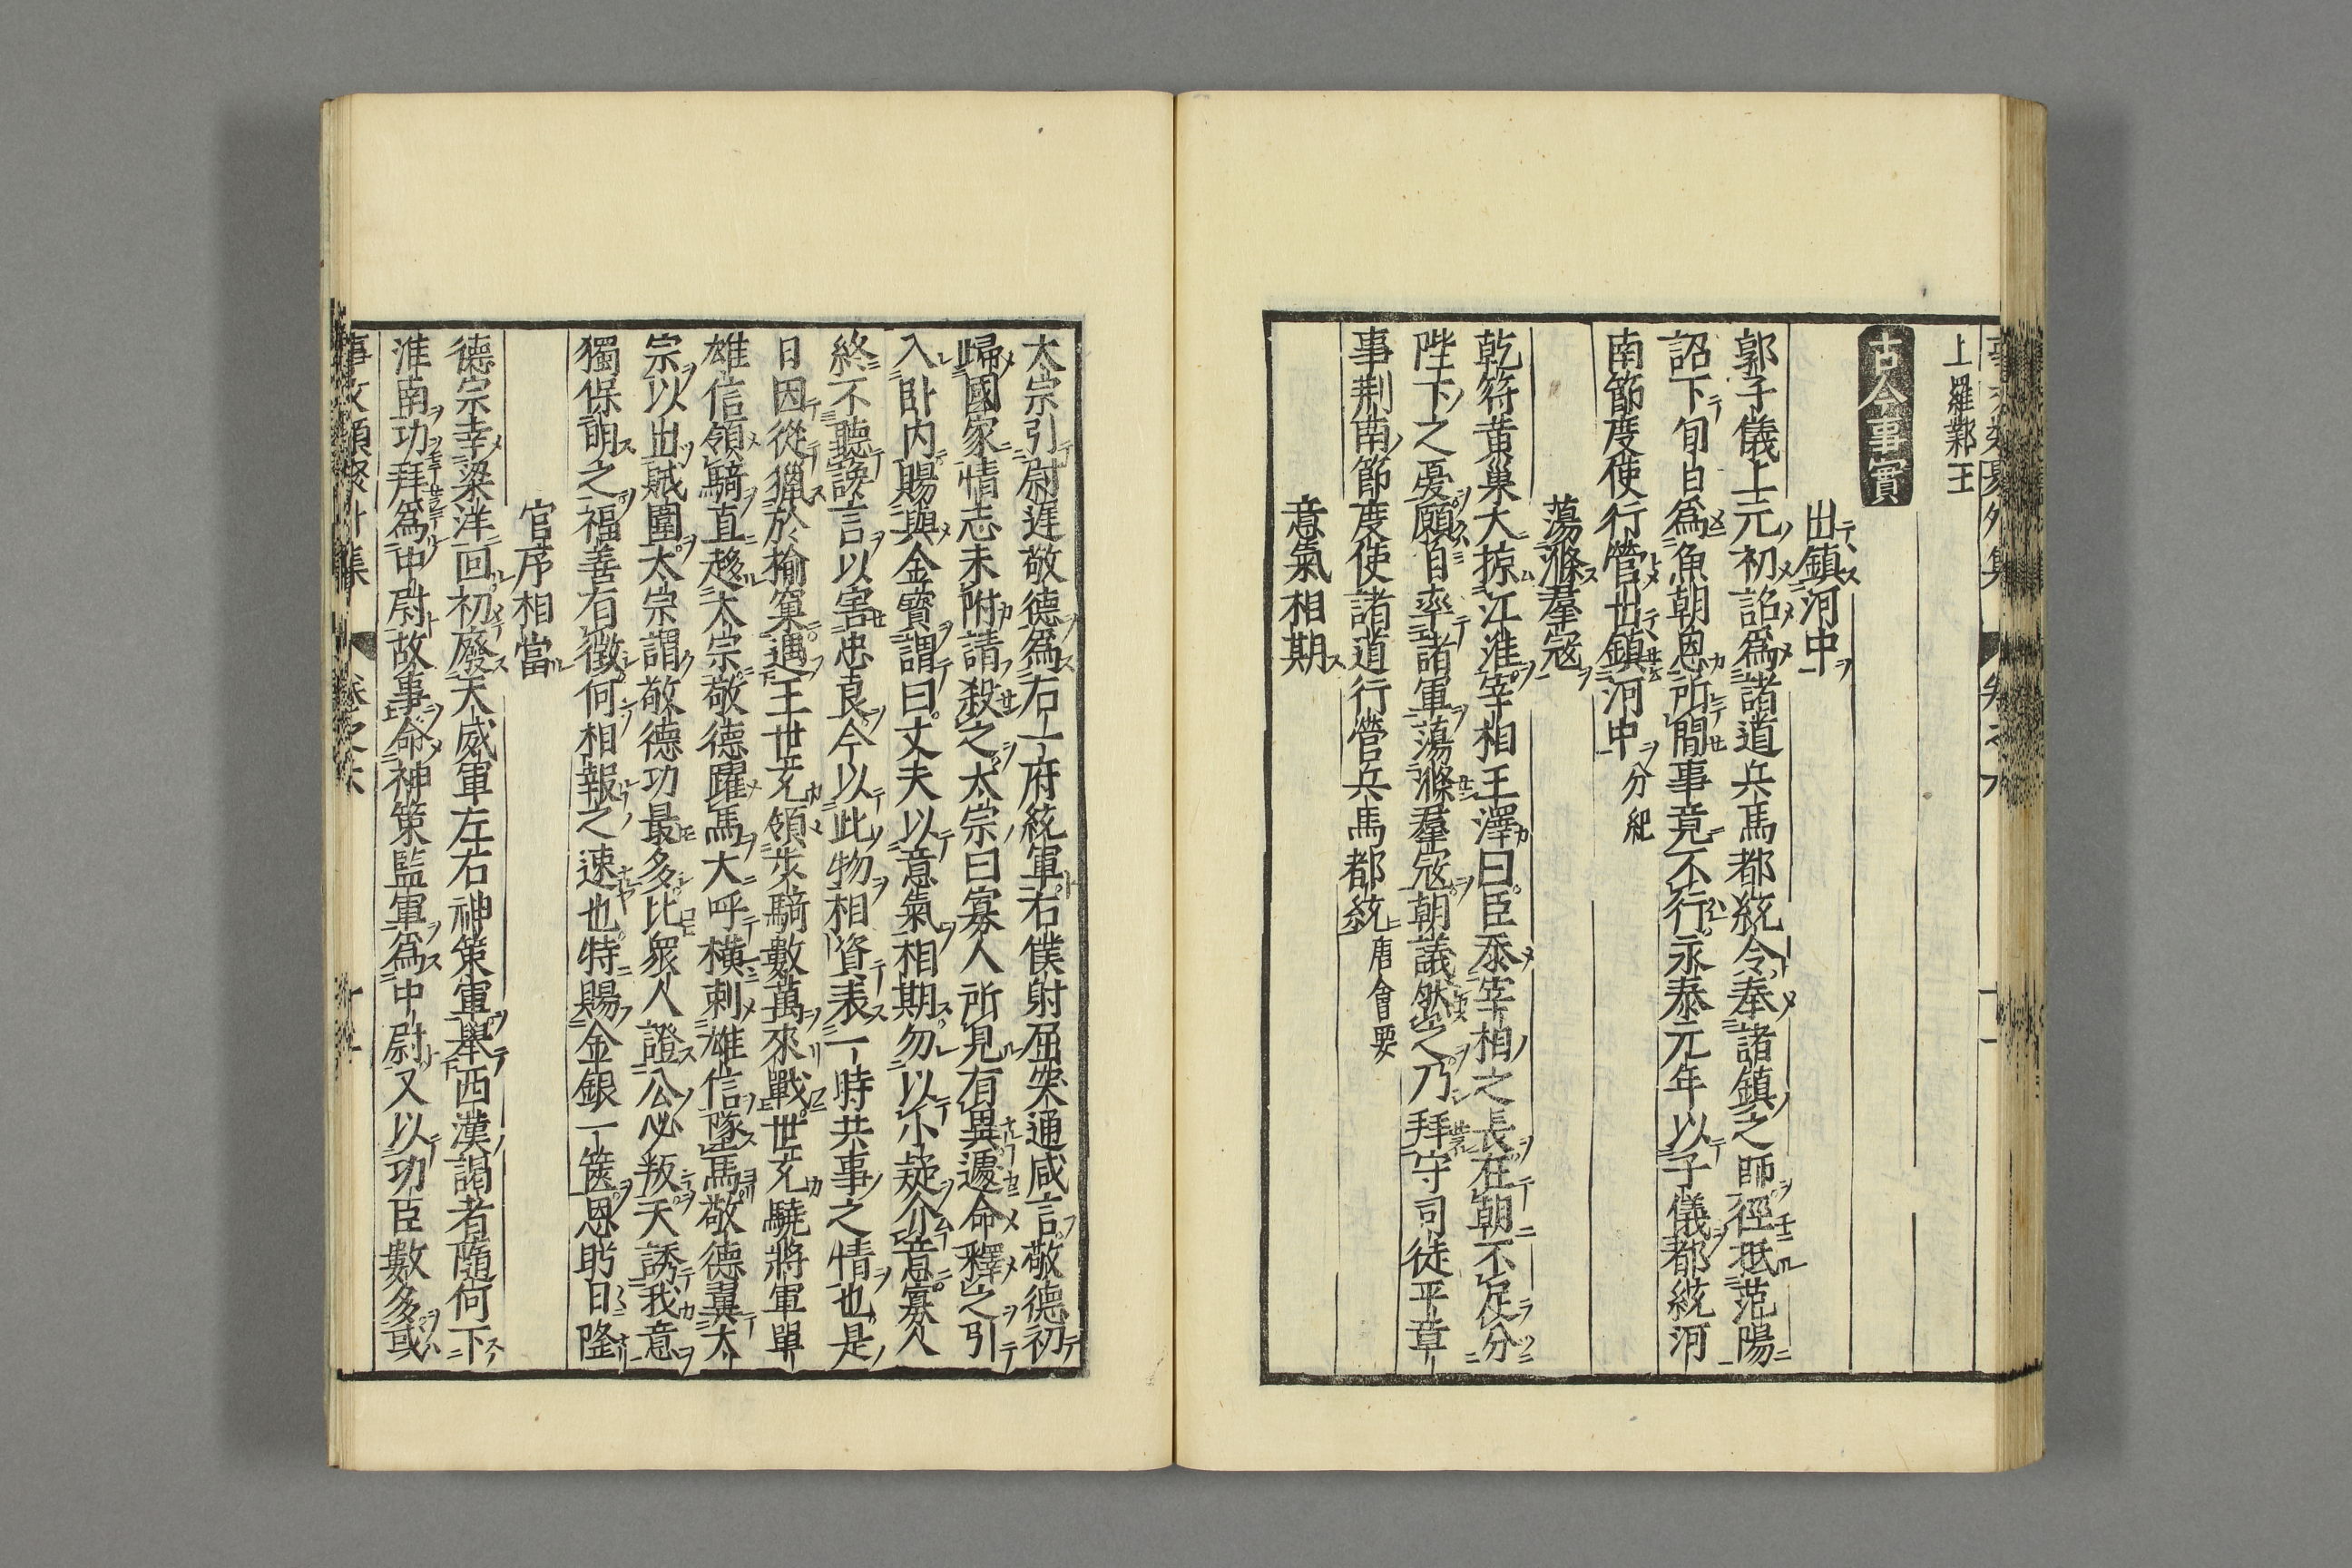 上羅鄴王
古今事實
出鎮河中
郭子儀上元初詔為諸道兵馬都統令奉諸鎮之師徑抵范陽
詔下旬日為魚朝恩所間事竟不行永泰元年以子儀都統河
南節度使行營出鎮河中分紀
蕩滌羣寇
乾符黃巢大掠江淮宰相王澤曰臣忝宰相之長在朝不足分
陛下之憂願自率諸軍蕩滌羣寇朝議然之乃拜守司徒平章
事荆南節度使諸道行營兵馬都統唐會要
意氣相期
太宗引尉遲敬德為右一府統軍右僕射屈突通咸言敬德初
歸國家情志未附請殺之太宗曰寡人所見有異遽命釋之引
入卧内賜與金寶謂曰丈夫以意氣相期勿以小疑介意寡人
終不聽讒言以害忠良今以此物相資表一時共事之情也是
日因從獵於榆窠遇王世充領步騎數萬來戰世充驍將軍單
雄信領騎直趍太宗敬德躍馬大呼横刺雄信墜馬敬德翼太
宗以出賊圍太宗謂敬德功最多比衆人證公必叛天誘我意
獨保明之福善有徵何相報之速也特賜金銀一篋恩眄日隆
官序相當
德宗幸梁洋回初廢天威軍左右神策軍舉西漢謁者隨何下
淮南功拜為中尉故事命神策監軍為中尉又以功臣數多或